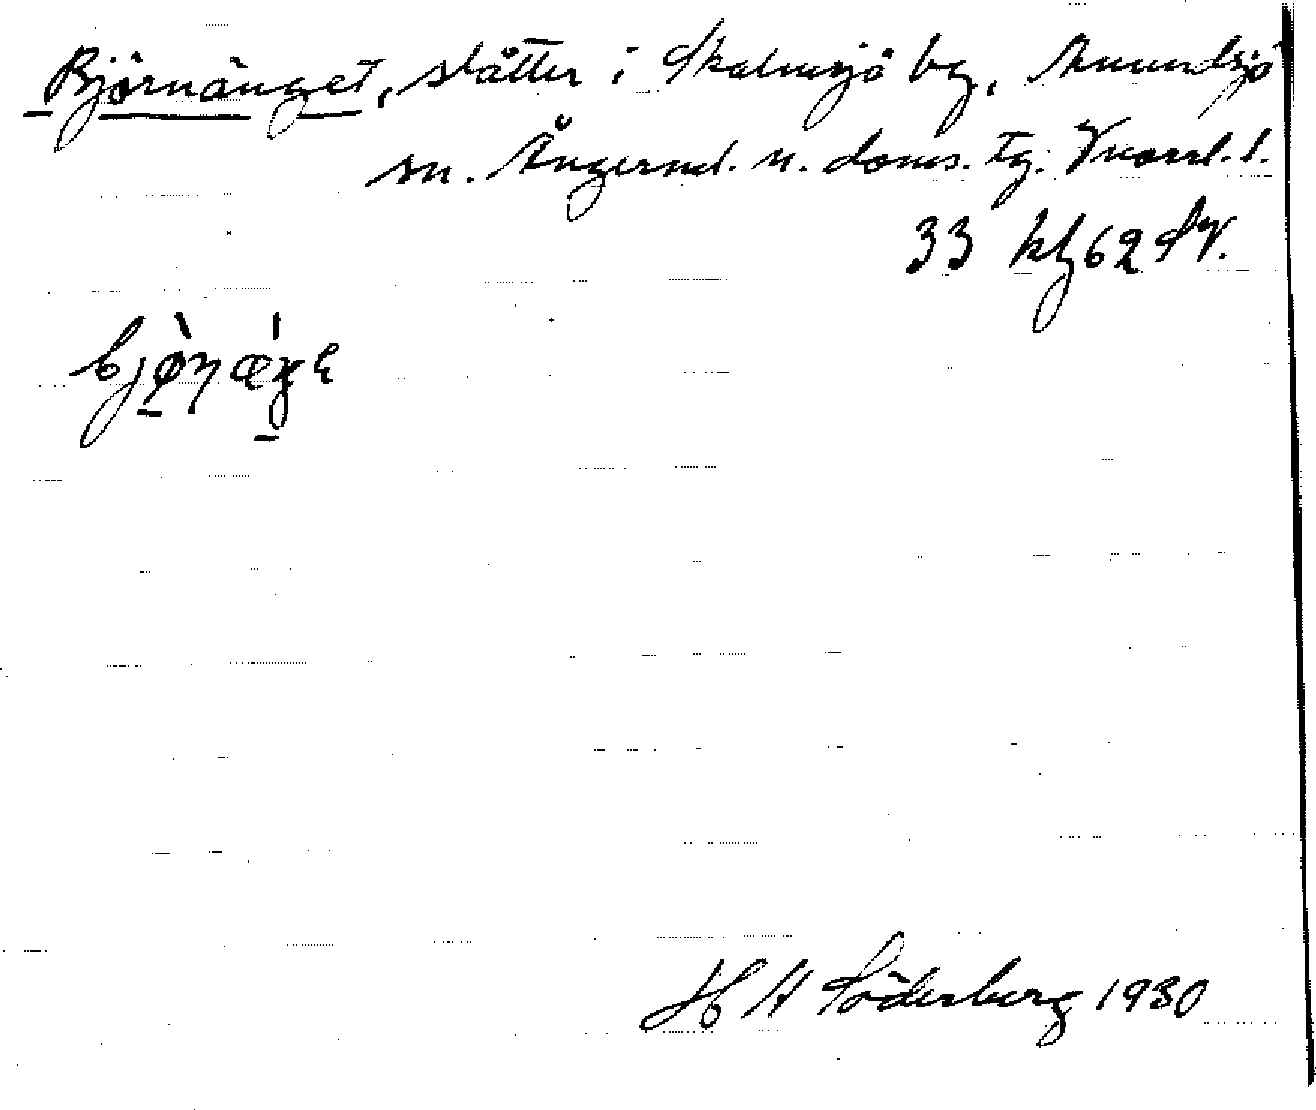 Björnänget, slåtter i Skalmsjö by, Anundsjö
sn. Ångerml. n. doms. tg. Vnorrl. l.
33 kf 62 SV.
bjø̀ɳǽŋɛ
H A Söderberg 1930